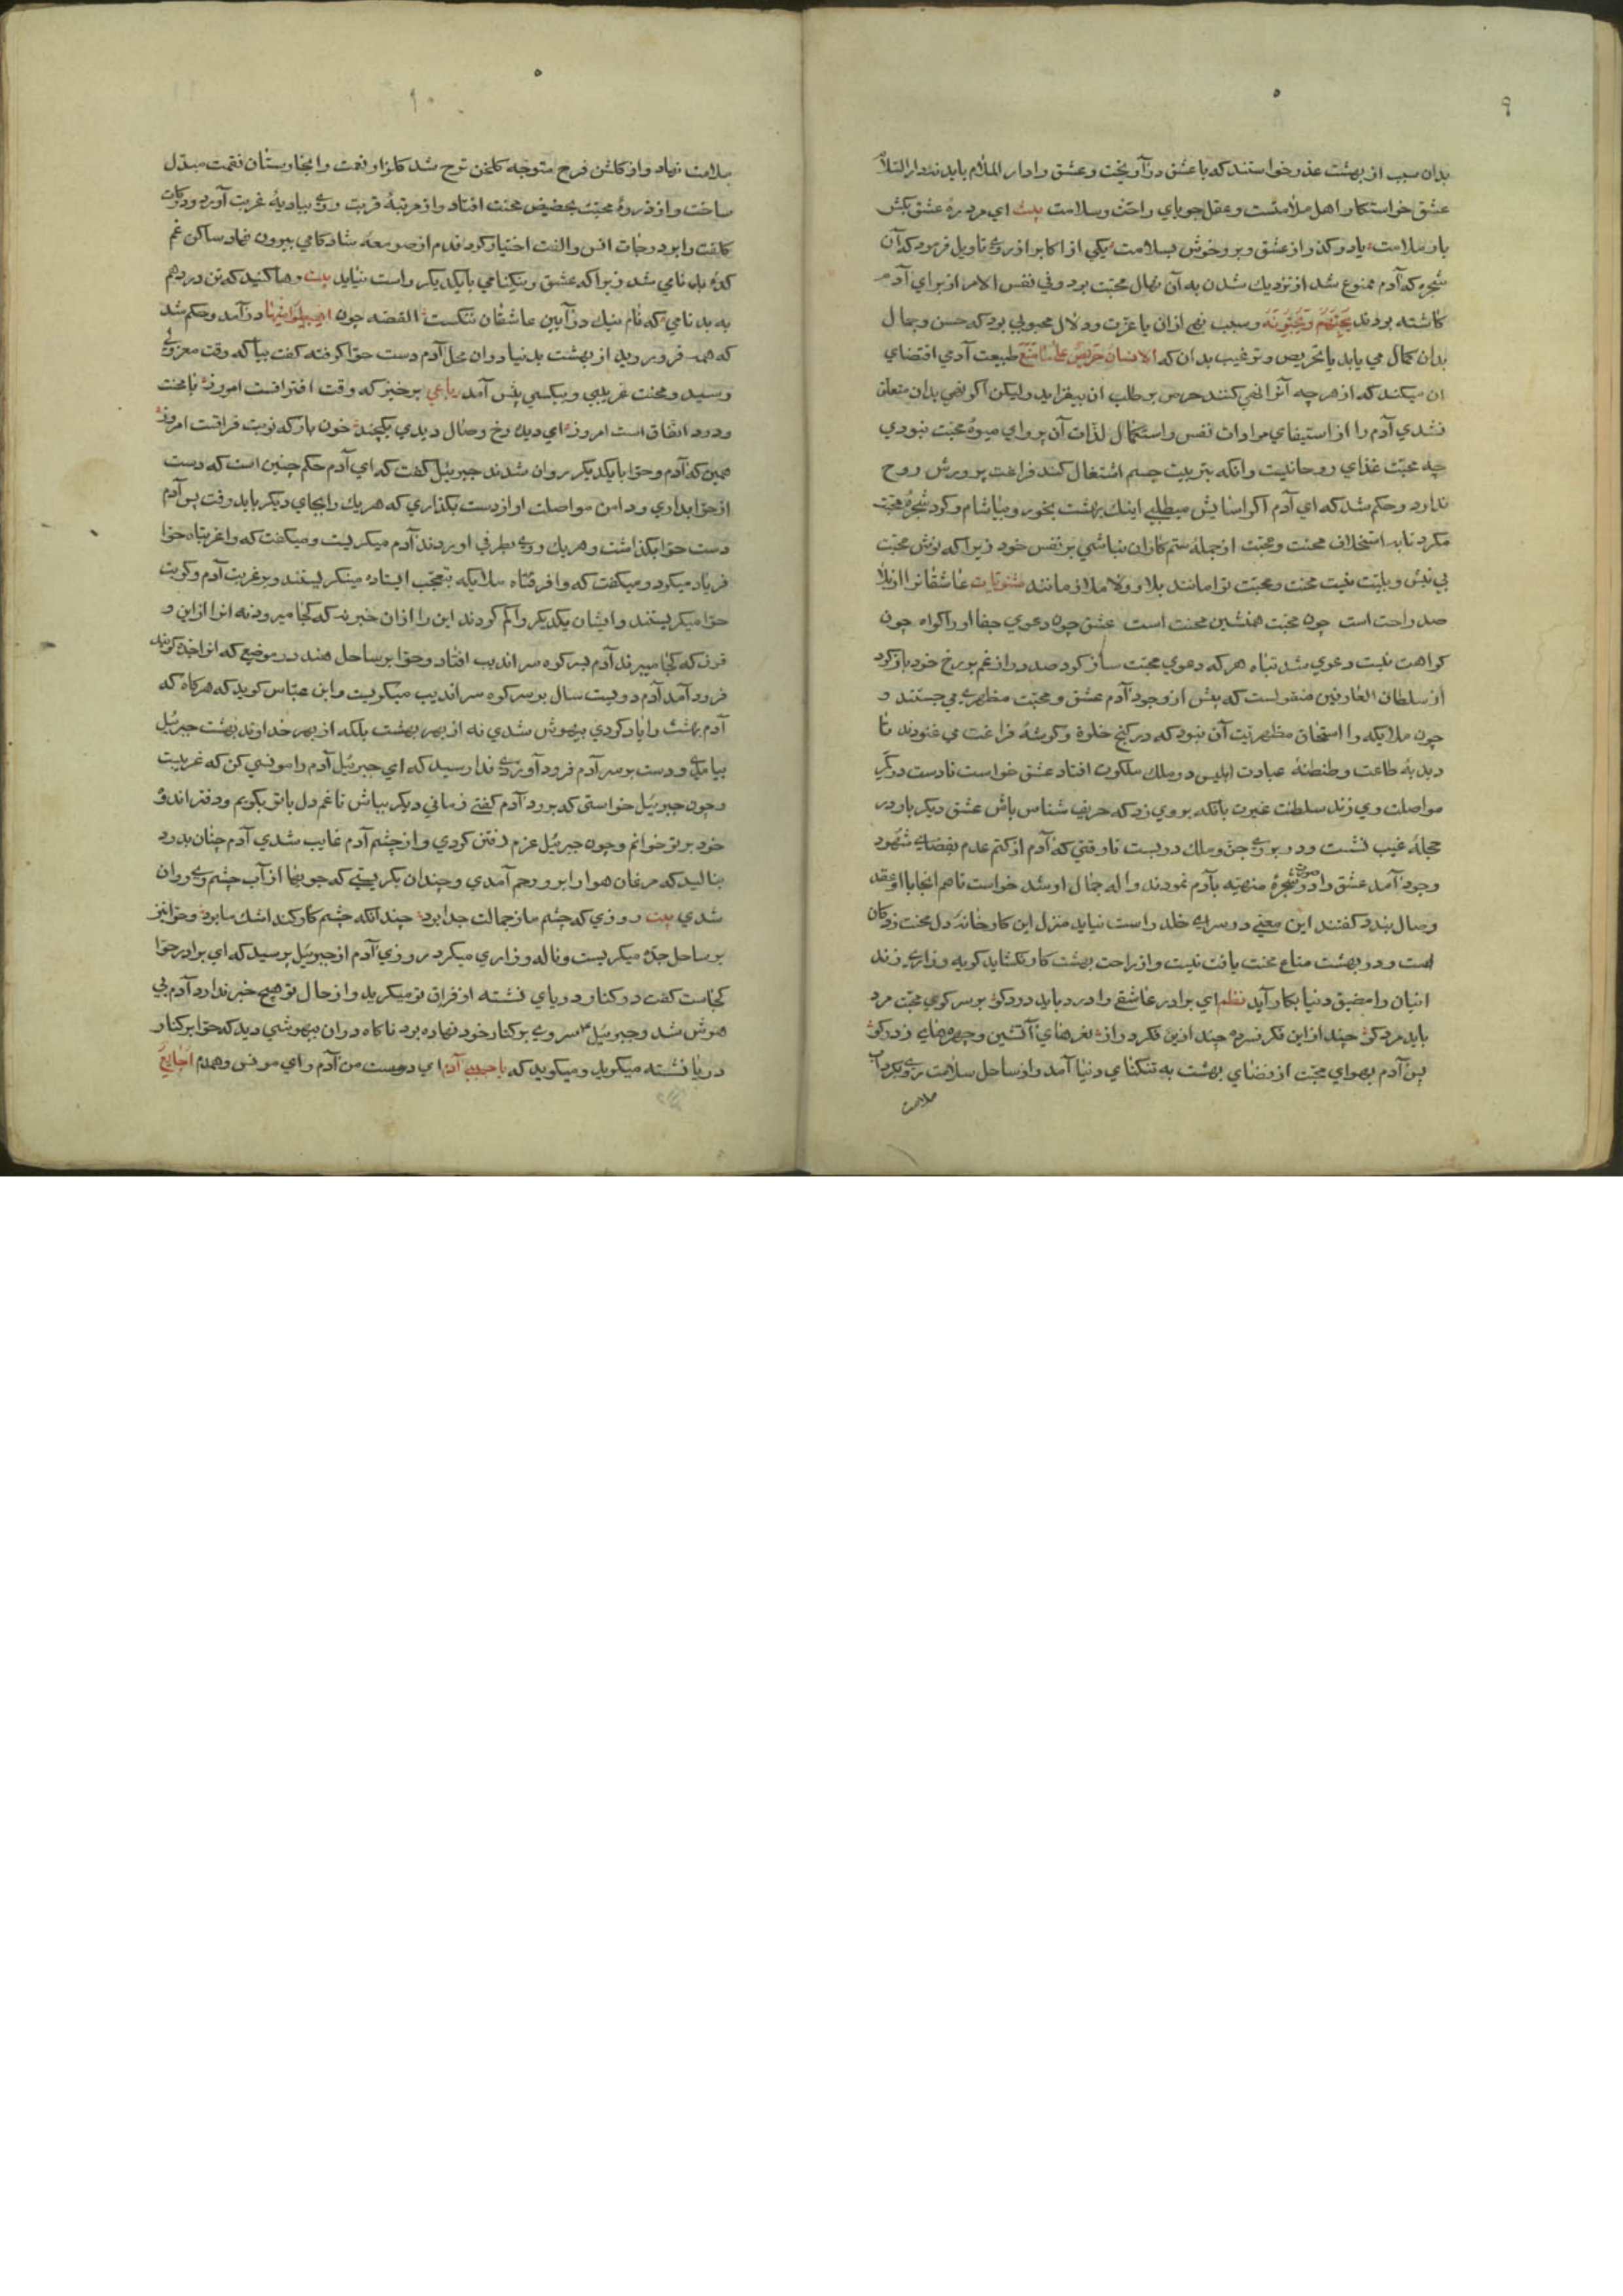 ۹
بدان سبب از بهشت عذر خواستند که با عشق در آویخت و عشق را دار الملام باید نه دار السلام
عشق خواستکار اهل ملامتست و عقل جویای راحت و سلامت بیت ای مرد ره عشق بکش
بار ملامت یا در کذر از عشق و برو خوش بسلامت یکی از اکابر از روی تاویل فرمود که آن
شجره که آدم ممنوع شد از نزدیک شدن به آن نهال محبت بود و فی نفس الامر از برای آدم
کاشته بودند یحبهم و یحبونه و سبب نهی ازان یا عزت و دلال محبوبی بود که حسن و جمال
بدان کمال می یابد یا تحریص و ترغیب بدان که الانسان حریص علی ما منع طبیعت آدمی اقتضای
ان میکند که از هر چه آنرا نهی کنند حرص بر طلب ان بیفزاید ولیکن اکر نهی بدان متعلق
نشدی آدم را از استیفای مرادات نفس و استکمال لذات آن پروای میوه محبت نبودی
چه محبت غذای روحانیست و انکه بتربیت جسم اشتغال کند فراغت پرورش روح
ندارد و حکم شد که ای آدم اکر اسایش میطلبی اینک بهشت بخور و بیاشام و کرد شجره محبت
مکرد تا به محنت و محبت از جمله ستم کاران نباشی بر نفس خود زیرا که نوش محبت
بی نیش و بلیت نیست محنت و محبت توامانند بلا و ولا ملازمانند مثنویات عاشقانرا از ولا
صد راحت است چون محبت همنشین محنت است عشق چون دعوی جفا او را کواه چون
کواهت نیست دعوی شد تباه هر که دعوی محبت ساز کرد صد در از غم بر رخ خود باز کرد
از سلطان العارفین منقولست که پیش از وجود آدم عشق و محبت مظهری می جستند و
چون ملایکه را استحقاق مظهریت آن نبود که در کنج خلوة و کوشهٔ فراغت می غنودند تا
دبدبهٔ طاعت و طنطنهٔ عبادت ابلیس در ملک ملکوت افتاد عشق خواست تا دست در کمر
مواصلت وی زند سلطنت غیرت بانکه بر وی زد که حریف شناس باش عشق دیکر باره در
حجلهٔ غیب نشست و در بروی جن و ملک در بست تا وقتی که آدم از کتم عدم بفضای شهود
وجود آمد عشق را در صورت شجرهٔ منهیه بآدم نمودند واله جمال او شد خواست تا هم انجا با او عقد
وصال بندد کفتند این معنی در سرای خلد راست نیاید منزل این کارخانهٔ دل محنت زدکان
است و در بهشت متاع محنت یافت نیست و از راحت بهشت کار نکشاید کریه و زاری زند
انیان را مضیق دنیا بکار آید نظم ای برادر عاشقی را درد باید درد کو بر سر کوی محبت مرد
باید مرد کو چند ازین فکر فسرده چند ازین فکر دراز نعرهای آتشین و چهرهای زرد کو
پس آدم بهوای محبت از فضای بهشت به تنکنای دنیا آمد و از ساحل سلامت روی بکرداب
ملامت
۱۰
ملامت نهاد و از کلشن فرح متوجه کلخن ترح شد کلزار نعمت را بخارستان نقمت مبدل
ساخت و از ذروهٔ محبت بحضیض محنت افتاد و از مرتبهٔ قربت روی ببادیهٔ غربت آورد و درکات
کلفت را بر درجات انس و الفت اختیار کرد قدم از صومعهٔ شادکامی بیرون نهاد ساکن غم
کدهٔ بدنامی شد زیرا که عشق و نیکنامی با یکدیکر راست نیاید بیت رها کنید که تن در دهم
به بدنامی که نام نیک در آیین عاشقان ننکست القصه چون اهبطوا منها در آمد و حکم شد
که همه فرو روید از بهشت بدنیا دران محل آدم دست حوا کرفته کفت بیا که وقت معزولی
رسید و محنت غریبی و بیکسی پیش آمد رباعی برخیز که وقت افتراقست امروز با محنت
و درد اتفاق است امروز ای دیده رخ وصال دیدی یکچند خون بار که نوبت فراقست امروز
همین که آدم و حوا با یکدیکر روان شدند جبرئیل کفت که ای آدم حکم چنین است که دست
از حوا بداری و دامن مواصلت او از دست بکذاری که هر یک را بجای دیکر باید رفت پس آدم
دست حوا بکذاشت و هر یک روی بطرفی اوردند آدم میکریست و میکفت که واغربتاه حوا
فریاد میکرد و میکفت که وافرقتاه ملایکه بتعجب ایستاده مینکریستند و بر غربت آدم و کربت
حوا میکریستند و ایشان یکدیکر را کم کردند این را ازان خبر نه که کجا میرود نه انرا از این و
قوف که کجا میبرند آدم بسر کوه سراندیب افتاد و حوا بر ساحل هند در موضع که انرا جده کویند
فرود آمد آدم دویست سال بر سر کوه سراندیب میکریست و ابن عباس کوید که هرکاه که
آدم بهشت را یاد کردی بیهوش شدی نه از بهر بهشت بلکه از بهر خداوند بهشت جبرئیل
بیامدی و دست بر سر آدم فرود آوردی ندا رسید که ای جبرئیل آدم را مونسی کن که غریبست
و چون جبرئیل خواستی که برود آدم کفتی زمانی دیکر بباش تا غم دل با تو بکویم و دفتر اندوه
خود بر تو خوانم و چون جبرئیل عزم رفتن کردی و از چشم آدم غایب شدی آدم چنان بدرد
بنالیدی که مرغان هوا را برو رحم آمدی و چندان بکریستی که جویها از آب چشم وی روان
شدی بیت روزی که چشم ما ز جمالت جدا بود چندانکه چشم کار کند اشک ما بود و حوا نیز
بر ساحل جده میکریست و ناله و زاری میکرد روزی آدم از جبرئیل پرسید که ای برادر حوا
کجاست کفت در کنار دریای نشسته از فراق تو میکرید و از حال تو هیچ خبر ندارد آدم بی
هوش شد و جبرئیل سر وی بر کنار خود نهاده بود ناکاه دران بیهوشی دید که حوا بر کنار
دریا نشسته میکرید و میکوید که یا حبیبی آدم ای دوست من آدم و ای مونس و همدم اجایع